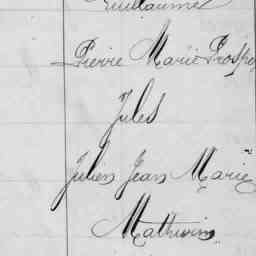 Guillaume
Pierre Marie Prospe
Jules
Julien Jean Marie
Mathurin